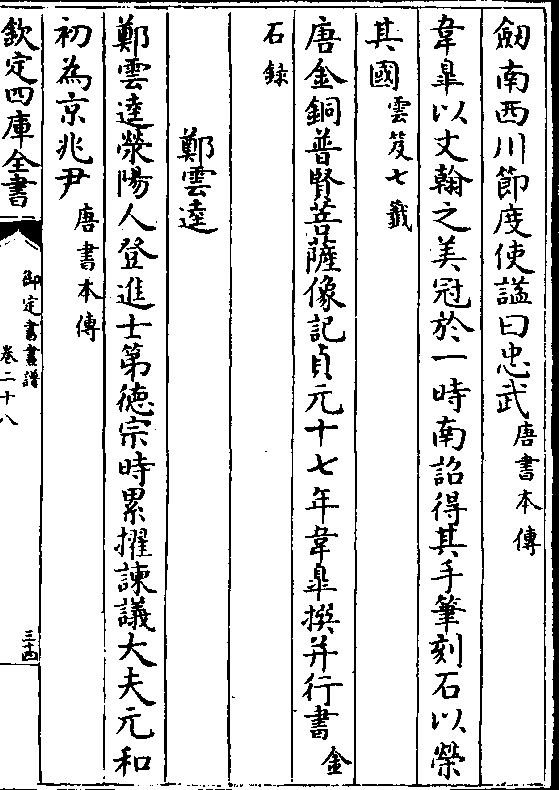 劒南西川節度使諡曰忠武唐書本傳
韋臯以文翰之美冠於一時南詔得其手筆刻石以榮
其國雲笈七籤
唐金銅普賢菩薩像記貞元十七年韋臯撰并行書金
石録
鄭雲逵
鄭雲逵滎陽人登進士第徳宗時累擢諫議大夫元和
初為京兆尹唐書本傳
欽定四庫全書
御定書畫譜
卷二十八
三十四